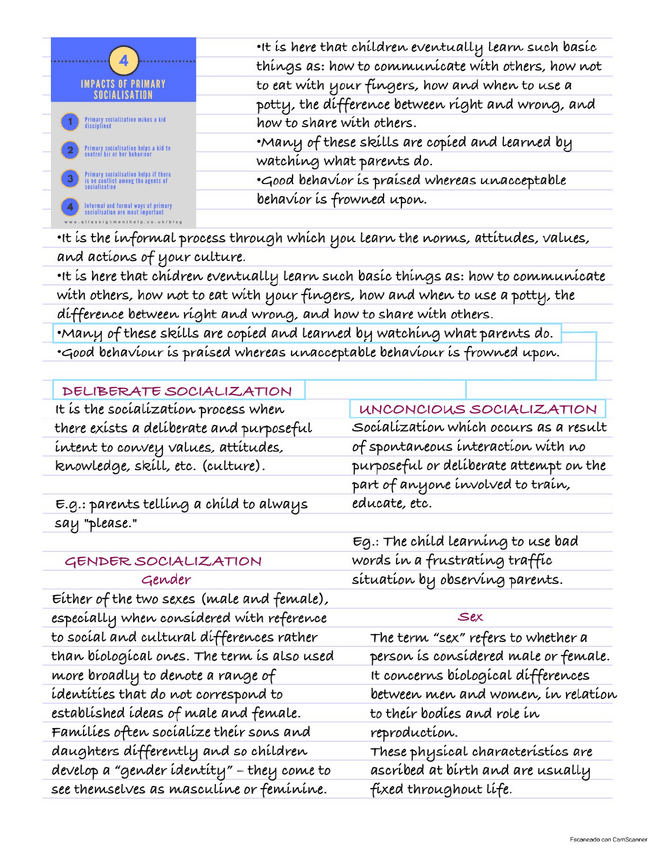 4
IMPACTS OF PRIMARY
SOCIALISATION
1 Primary socialization makes a kid
disciplined
2 Primary socialisation helps a kid to
control his or her behaviour
3 Primary socialisation helps if there
is no conflict among the agents of
socialisation
4 Informal and formal ways of primary
socialisation are most important
www.allassignmenthelp.co.uk/blog
•It is here that children eventually learn such basic
things as: how to communicate with others, how not
to eat with your fingers, how and when to use a
potty, the difference between right and wrong, and
how to share with others.
•Many of these skills are copied and learned by
watching what parents do.
•Good behavior is praised whereas unacceptable
behavior is frowned upon.
•It is the informal process through which you learn the norms, attitudes, values,
and actions of your culture.
•It is here that chidren eventually learn such basic things as: how to communicate
with others, how not to eat with your fingers, how and when to use a potty, the
difference between right and wrong, and how to share with others.
•Many of these skills are copied and learned by watching what parents do.
•Good behaviour is praised whereas unacceptable behaviour is frowned upon.
DELIBERATE SOCIALIZATION
It is the socialization process when
there exists a deliberate and purposeful
intent to convey values, attitudes,
knowledge, skill, etc. (culture).
E.g.: parents telling a child to always
say "please."
UNCONCIOUS SOCIALIZATION
Socialization which occurs as a result
of spontaneous interaction with no
purposeful or deliberate attempt on the
part of anyone involved to train,
educate, etc.
Eg.: The child learning to use bad
words in a frustrating traffic
situation by observing parents.
GENDER SOCIALIZATION
Gender
Either of the two sexes (male and female),
especially when considered with reference
to social and cultural differences rather
than biological ones. The term is also used
more broadly to denote a range of
identities that do not correspond to
established ideas of male and female.
Families often socialize their sons and
daughters differently and so children
develop a “gender identity” – they come to
see themselves as masculine or feminine.
Sex
The term “sex” refers to whether a
person is considered male or female.
It concerns biological differences
between men and women, in relation
to their bodies and role in
reproduction.
These physical characteristics are
ascribed at birth and are usually
fixed throughout life.
Escaneado con CamScanner